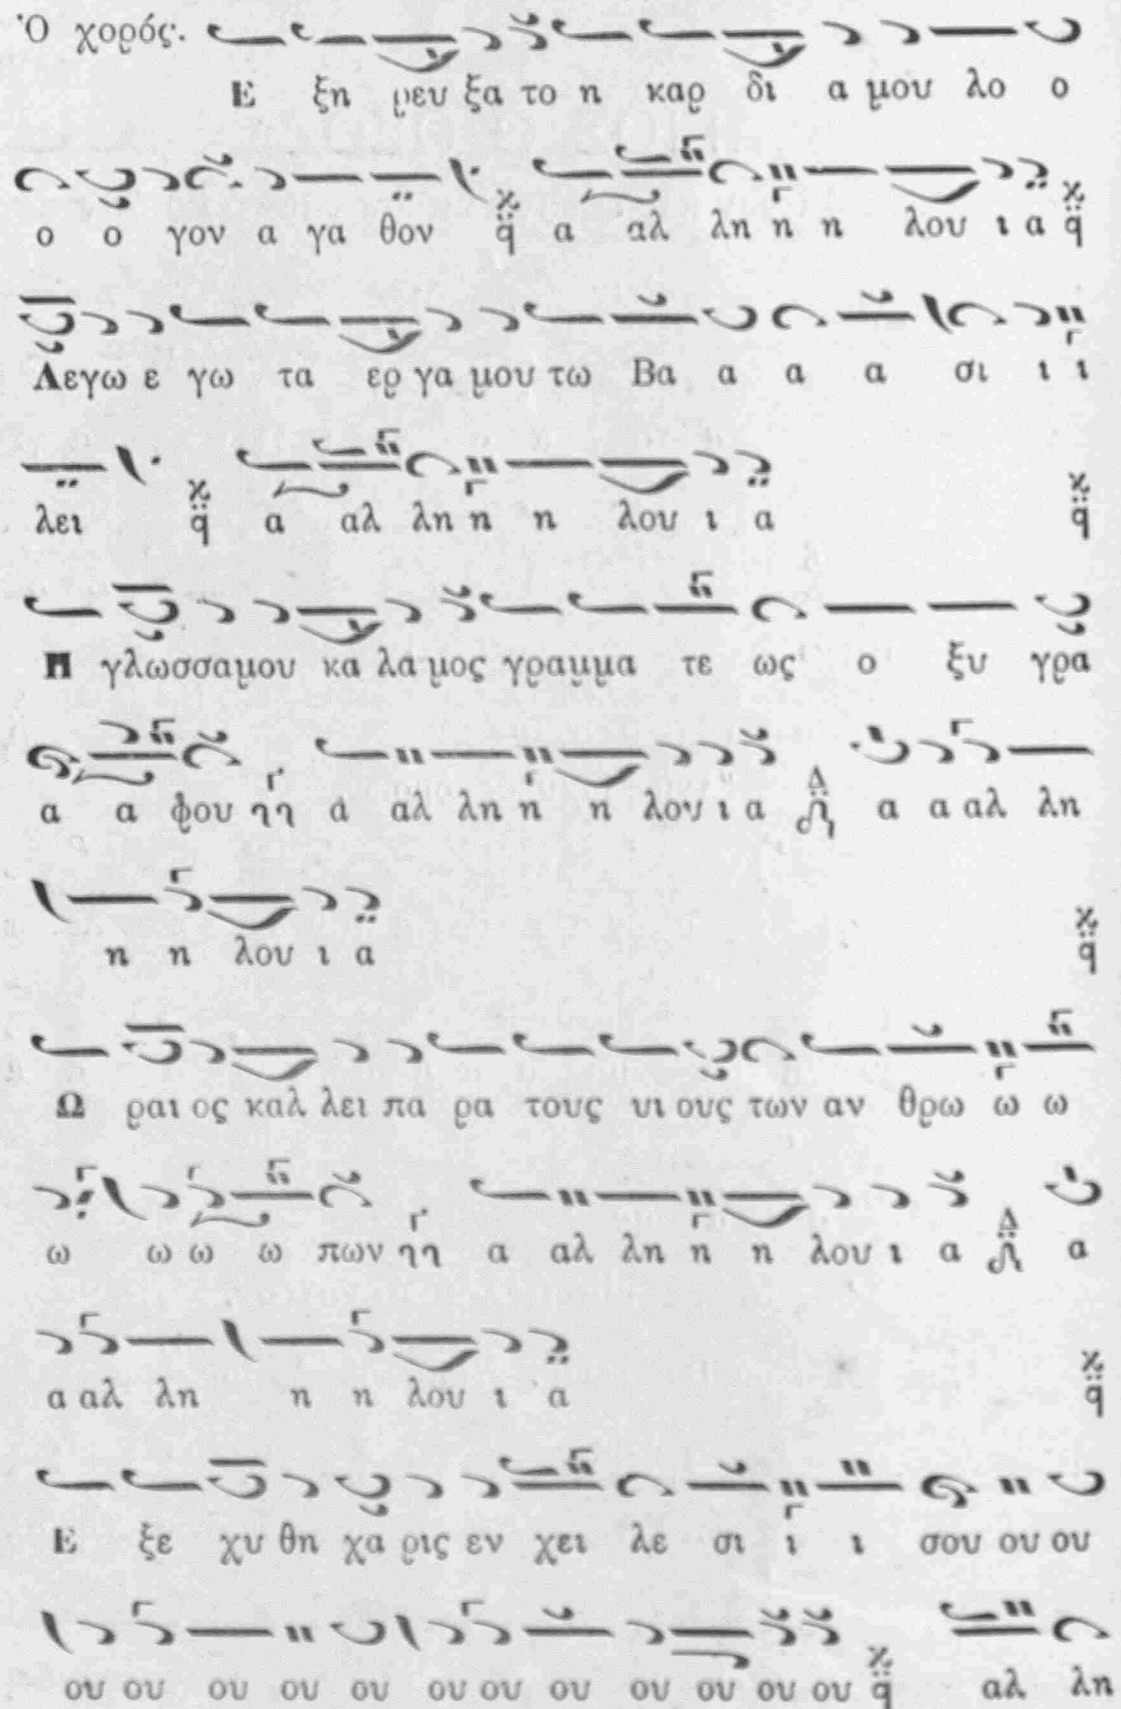 Ὁ χορός.
Ε ξη ρευ ξα το η καρ δι α μου λο ο
ο ο γον α γα θον q̈ α αλ λη η η λου ι α q̈
Λεγω ε γω τα ερ γα μου τω Βα α α α σι ι ι
λει q̈ α αλ λη η η λου ι α q̈
Η γλωσσαμου κα λα μος γραμμα τε ως ο ξυ γρα
α α φου α αλ λη η η λου ι α Δ α α αλ λη
η η λου ι α q̈
Ω ραι ος καλ λει πα ρα τους υι ους των αν θρω ω ω
ω ω ω ω πων α αλ λη η η λου ι α Δ α
α αλ λη η η λου ι α q̈
Ε ξε χυ θη χα ρις εν χει λε σι ι ι σου ου ου
ου ου ου ου ου ου ου ου ου ου ου ου q̈ αλ λη